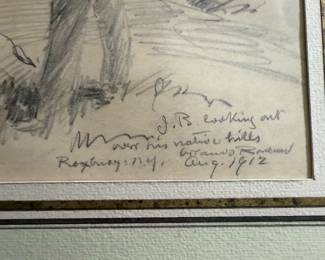 J.B looking out
over his native hills
Roxbury. N.Y. Orlando Rouland
Aug. 1912